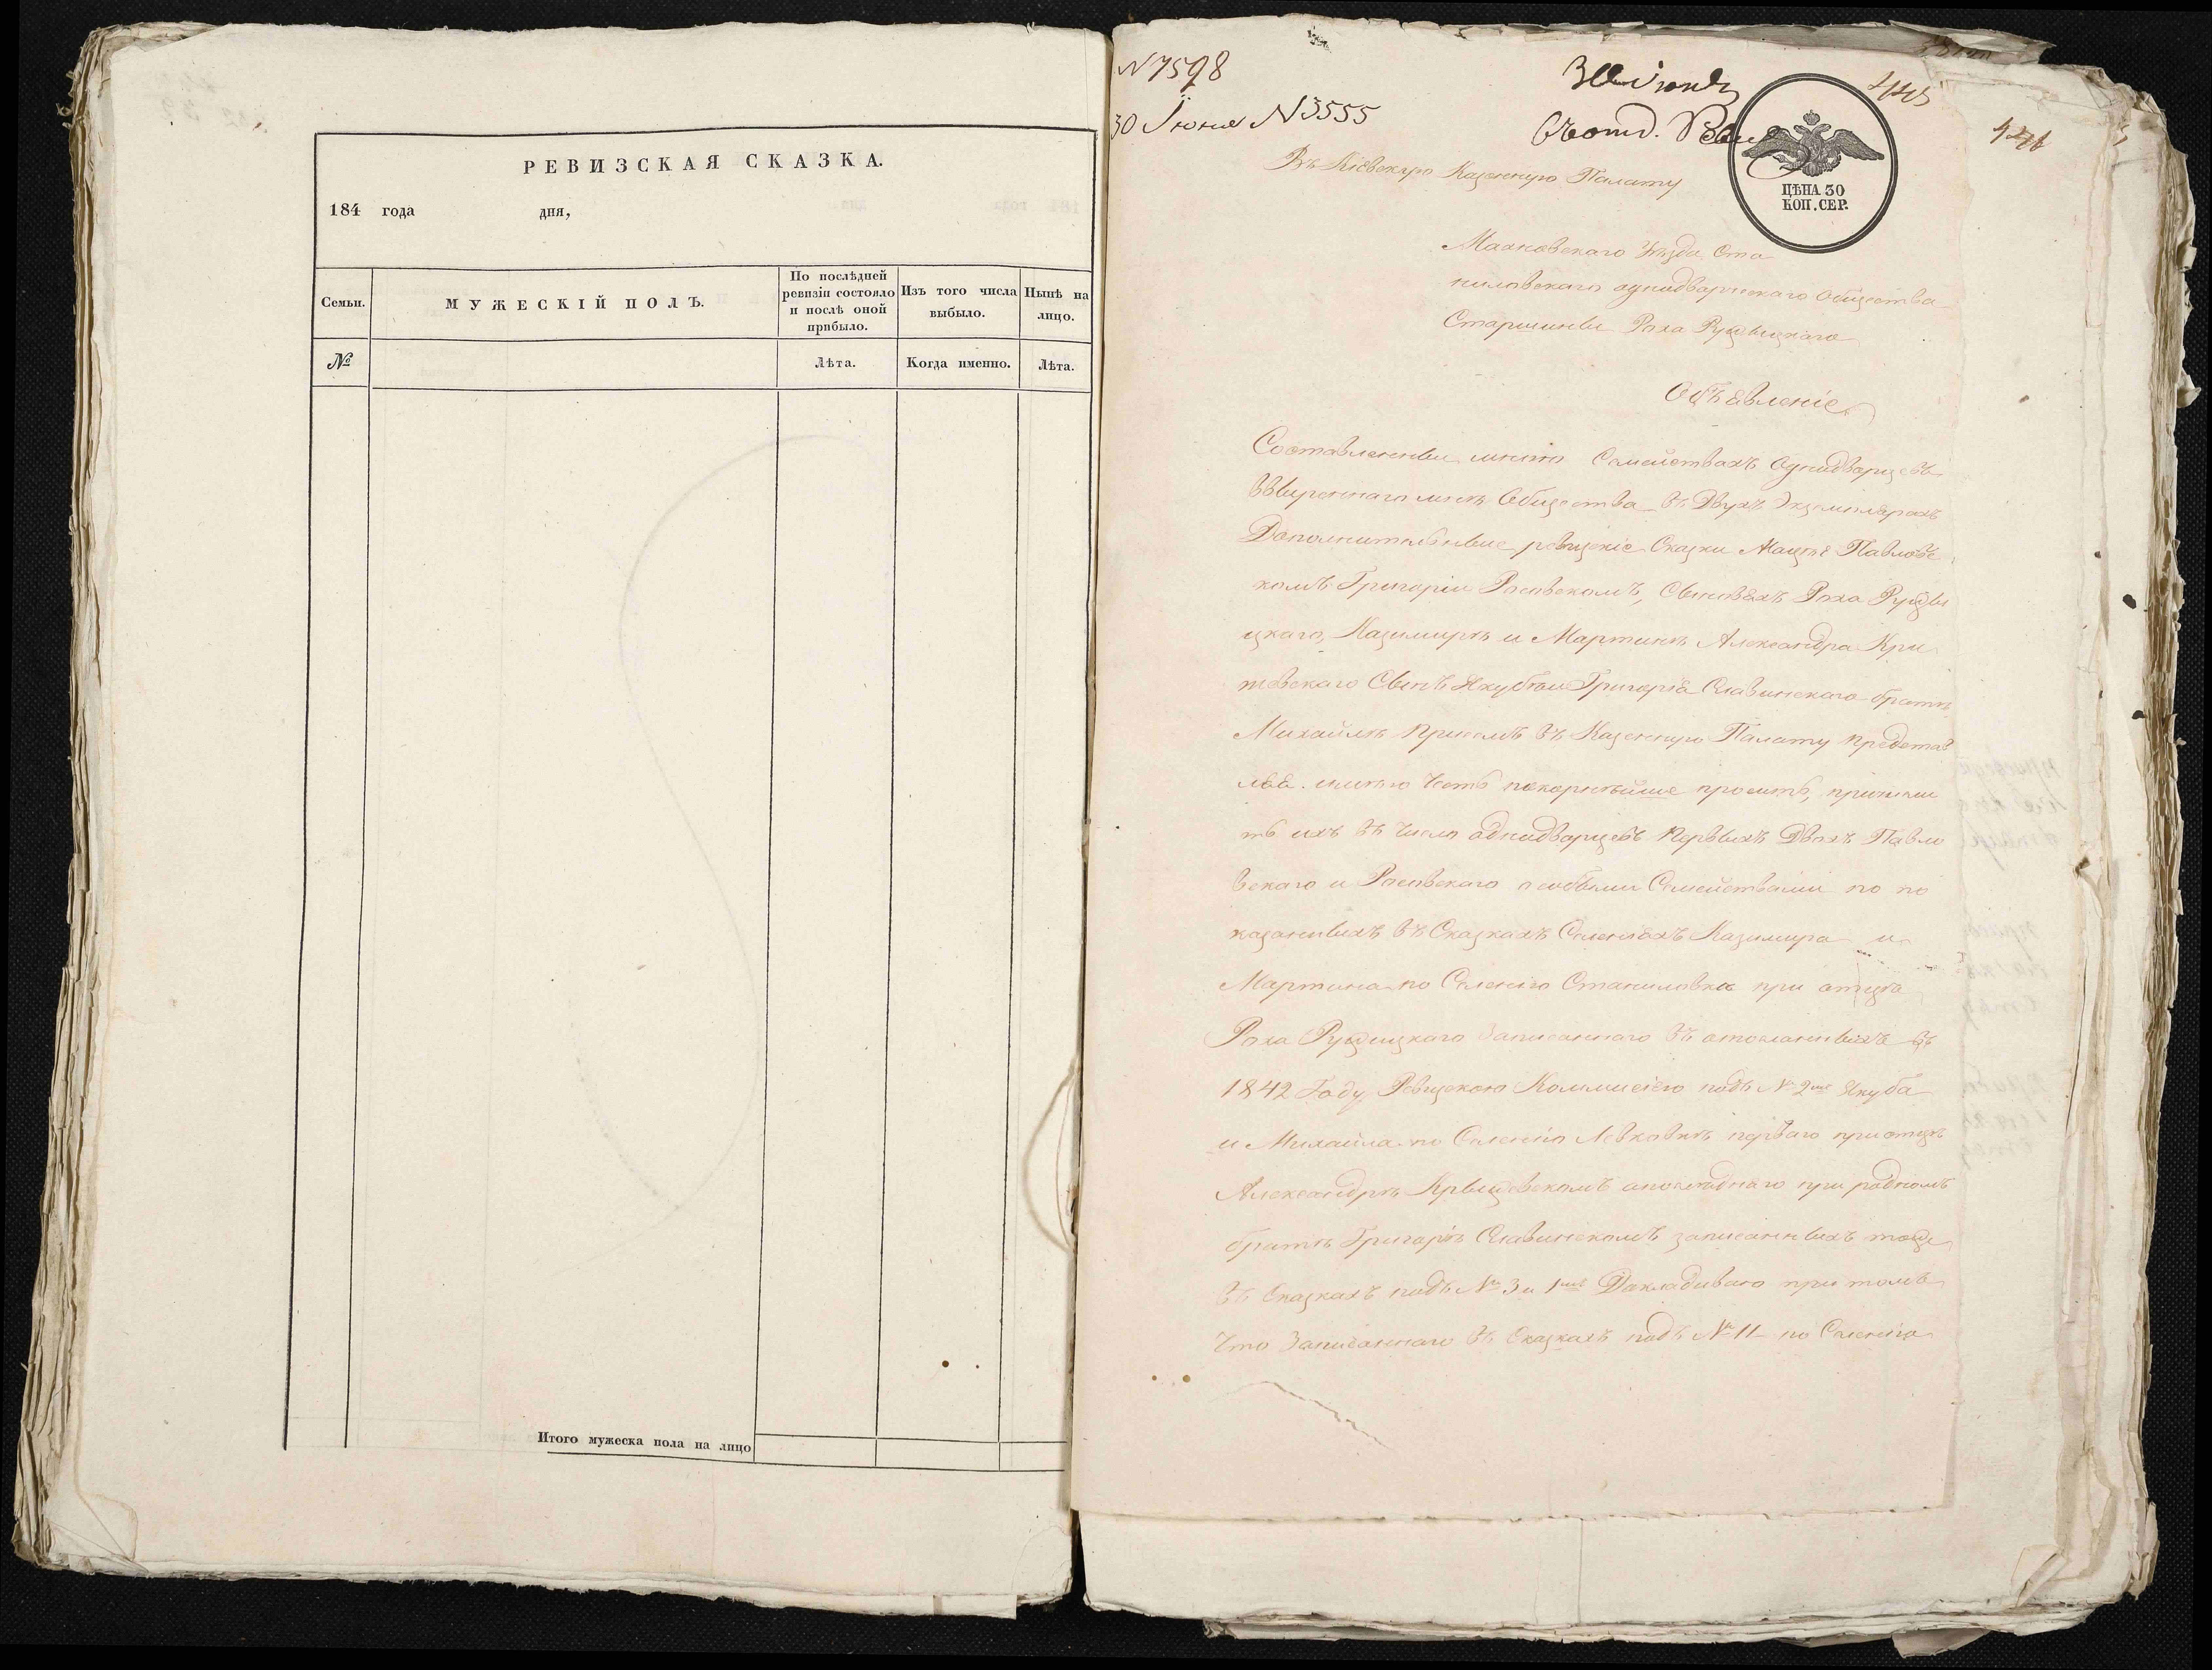 РЕВИЗСКАЯ СКАЗКА.
184 года дня,
Семьи.
МУЖЕСКІЙ ПОЛЪ.
По послѣдней
ревизіи состояло
и послѣ оной
прибыло.
Изъ того числа
выбыло.
Нынѣ на
лицо.
№
Лѣта.
Когда именно.
Лѣта.
Итого мужеска пола на лицо
N 7598
30 Іюня N 3555
30 Іюня
445
ЦѢНА 30
КОП. СЕР.
Въ Кіевскую Казенную Палату
Махновскаго Уѣзда Ста
ниловскаго однодворческаго Общества
Старшины Роха
Объявленіе
Составленные мною Семействахъ Однодворцевъ
ввиреннаго мнѣ Общества въ Двухъ Экземплярахъ
Дополнительные ревизкіе Сказки Мацѣѣ Павловс
комъ Григоріи Росовскомъ, Сыновьяхъ Роха
цкаго, Казимирѣ и Мартинѣ Александра Кри
шевскаго Сынѣ Якубѣ и Григорія Славинскаго братѣ
Михайлѣ при семъ въ Казенную Палату представ
ляя имѣю честь покорнѣйше просить, причисли
ть ихъ въ число однодворцевъ первыхъ Двохъ Павло
вскаго и Росовскаго особыми Семействами по по
казанныхъ въ Сказкахъ Селеніяхъ Казимира и
Мартина по Селенію Станиловка при отцѣ
Роха записаннаго въ отосланныхъ въ
1842 Году Ревизкою Коммисіею подъ № 2 Якуба
и Михайла по Селенію Левковкѣ перваго при отцѣ
Александрѣ Крыжевскомъ а послѣдняго при родномъ
братѣ Григоріѣ Славинскомъ записанныхъ тоже
въ Сказкахъ подъ № 3 и 1 Докладываю при томъ
что Записаннаго въ Сказкахъ подъ № 11 по Селенію